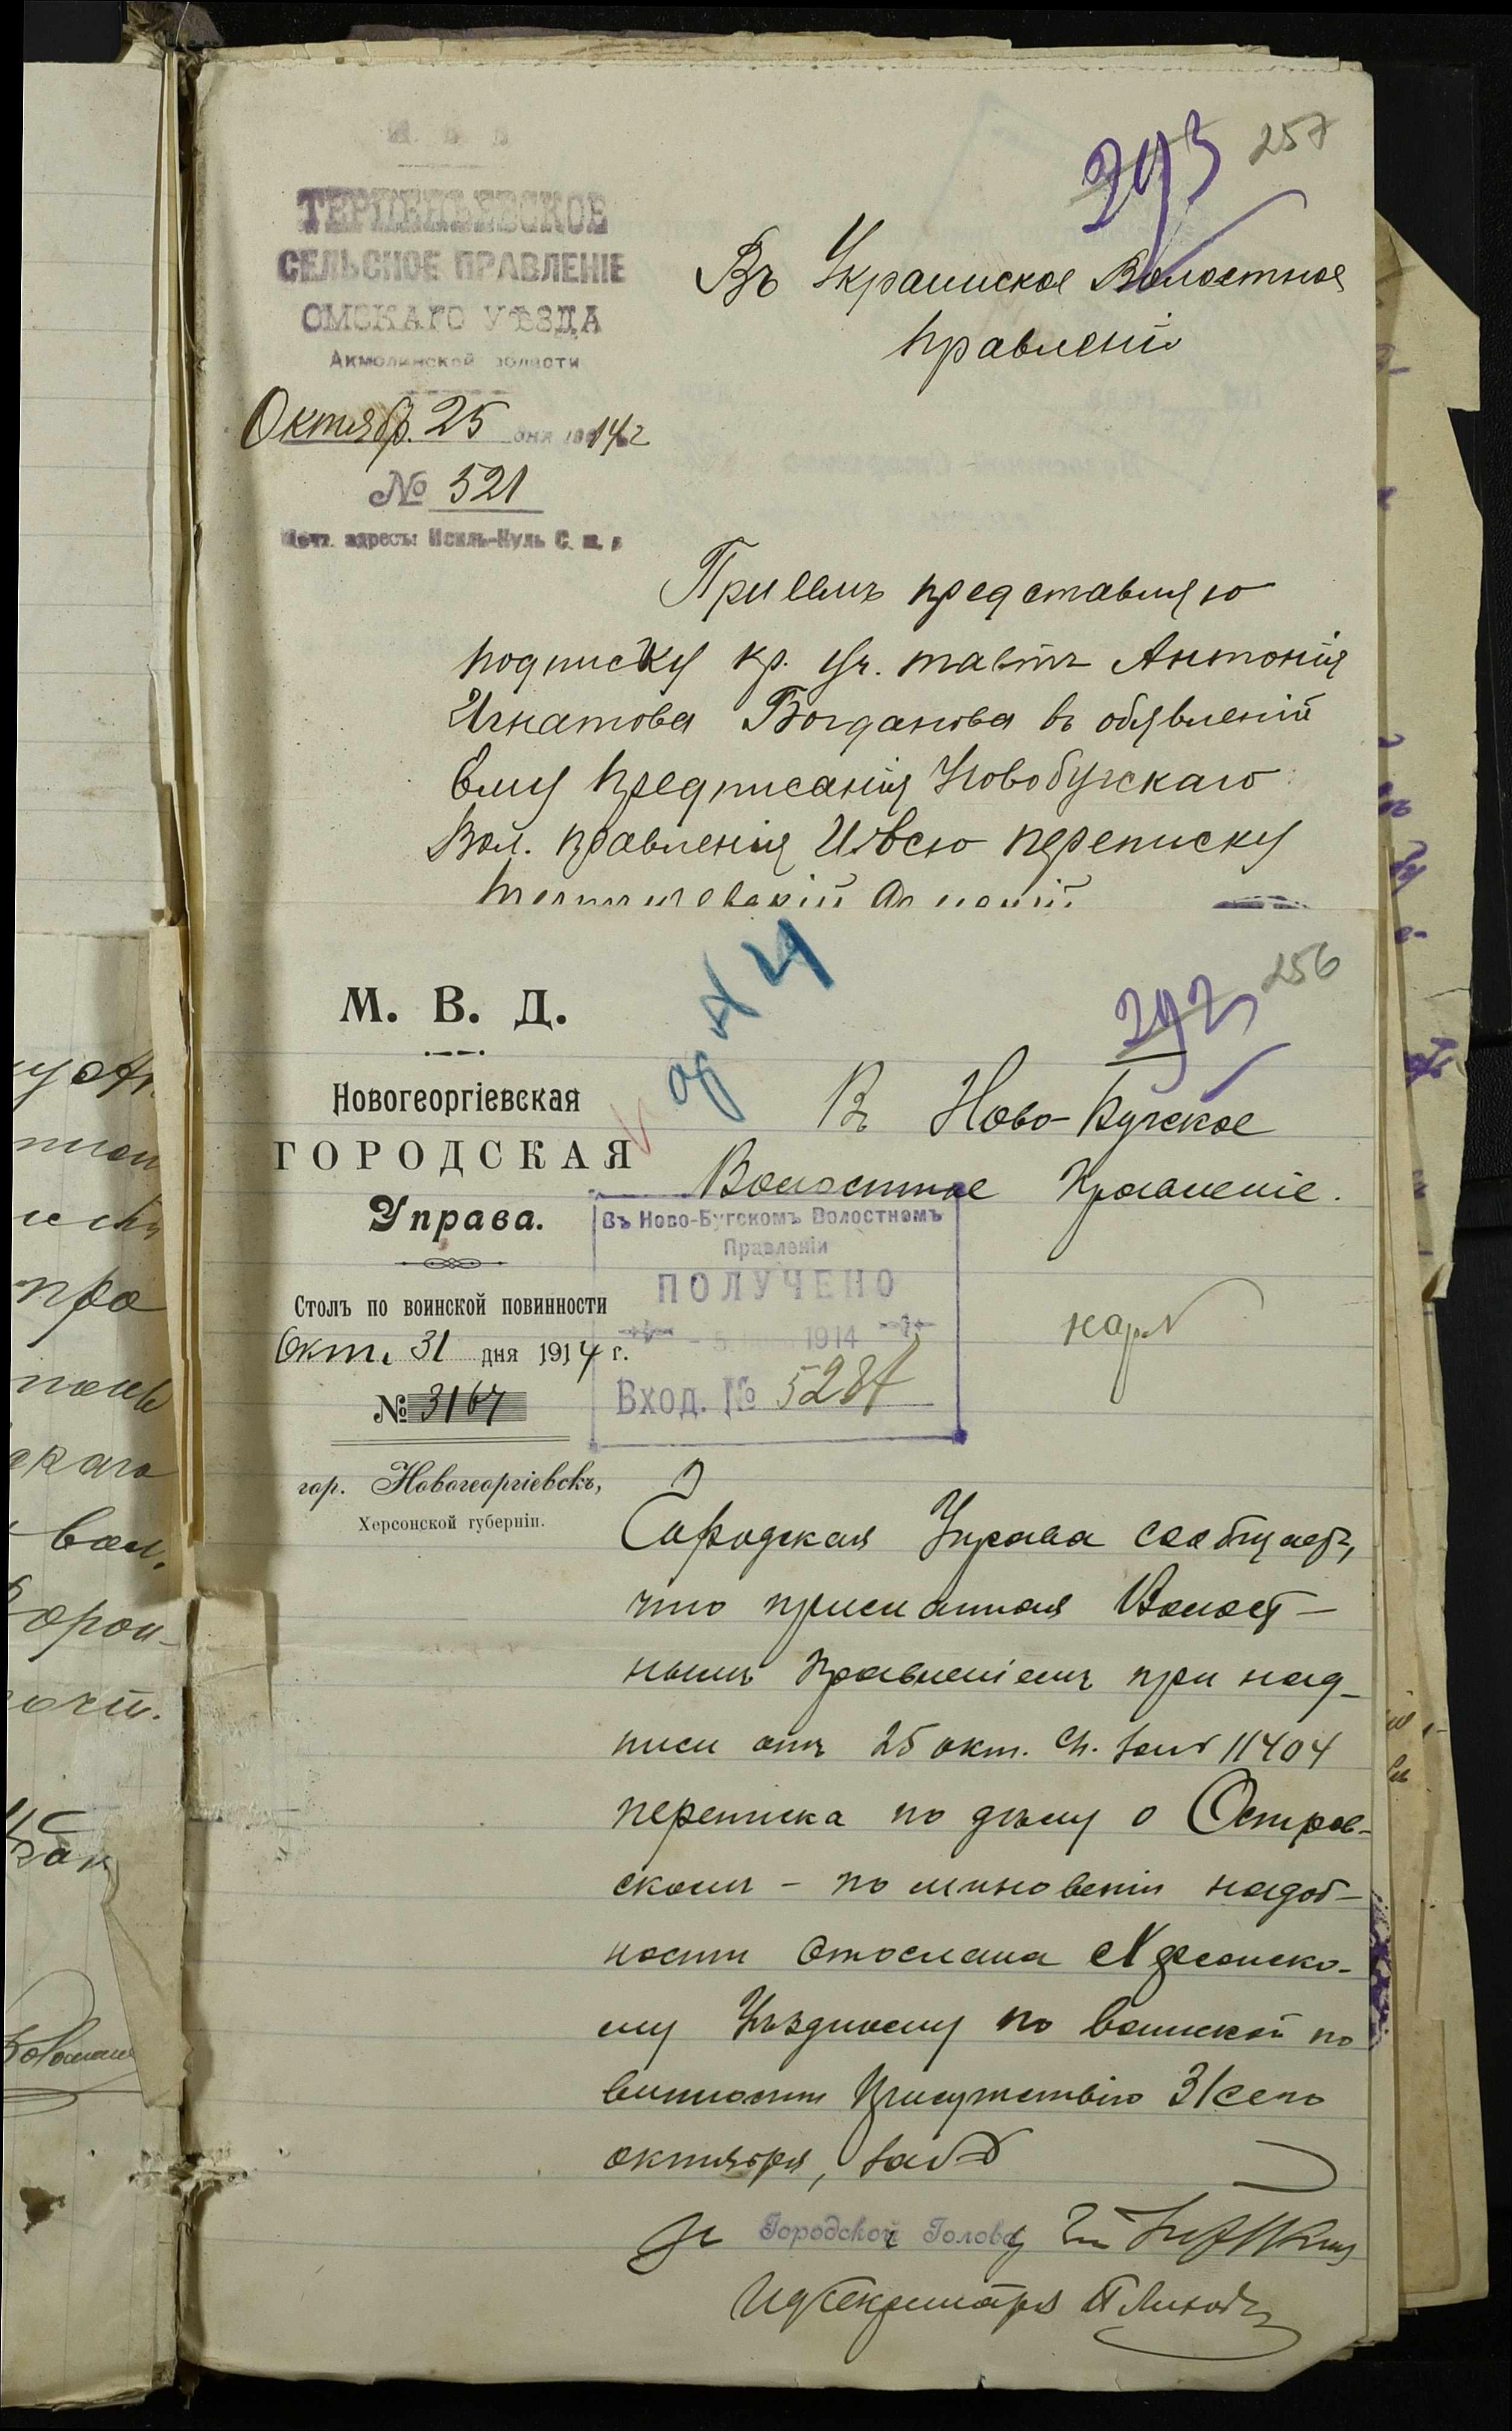 293 257
ТЕРПЕНЬЕВСКОЕ
СЕЛЬСКОЕ ПРАВЛЕНІЕ
ОМСКАГО УѢЗДА
Акмолинской области
Октябр. 25 дня 1914 г
№ 521
Почт. адресъ: Исиль-Куль С. ж. д
Въ Украинское Волостное
Правленіе
При семъ представляю
подписку кр. Уч. Антонія
Игнатова Богданова въ обявленій
ему предписанія Новобугскаго
Вол. Правленія И всю переписку
292 256
М. В. Д.
Новогеоргіевская
ГОРОДСКАЯ
Управа.
Столъ по воинской повинности
Окт. 31 дня 1914 г.
№ 3167
гор. Новогеоргіевскъ,
Херсонской губерніи.
Въ Ново-Бугское
Волостное Правленіе.
Въ Ново-Бугскомъ Волостномъ
Правленіи
ПОЛУЧЕНО
- 5 1914
Вход. № 5287
Городская Управа сообщаетъ,
что присланная Волост-
нымъ Правленіемъ при над-
писи отъ 25 окт. с.г. за № 11404
переписка по дѣлу о Остров-
скомъ - по минованіи надоб-
ности отослана Херсонско-
му Уѣздному по воинской по
винности Присутствію 31 сего
октября, за №
Городской Голова
Ид Секретаря